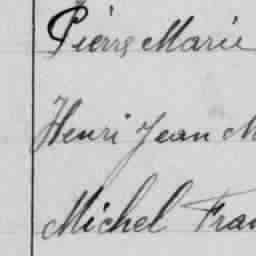 Pierre Marie
Henri Jean M
Michel Fran